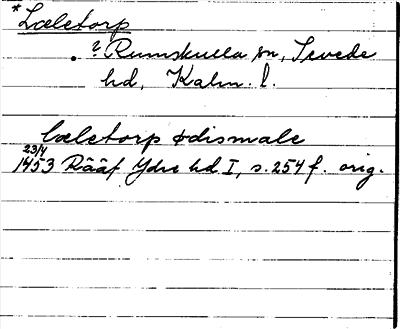 *Læletorp
. ? Rumskulla sn, Sevede
hd, Kalm. l.
læletorp ødismale
23/4
1453 Rääf Ydre hd I, s. 254 f. orig.